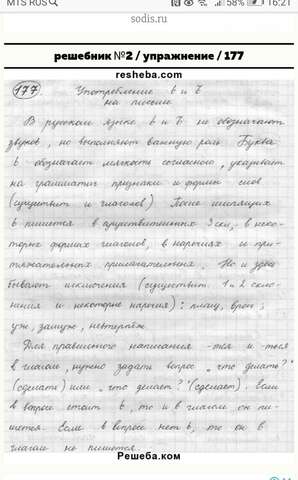 MTS RUS
58% 16:21
sodis.ru
решебник №2 / упражнение / 177
resheba.com
177. Употребление ь и ъ
на письме
В русском языке ь и ъ не обозначают
звуков, но выполняют важную роль. Буква
ь - обозначает мягкость согласного, указывает
на грамматич. признаки и формы слов
(существит. и глаголов). После шипящих
ь пишется в существительных 3 скл., в неко-
торых формах глаголов, в наречиях и при-
тяжательных прилагательных. Но и здесь
бывают исключения (существит. 1 и 2 скло-
нения и некоторые наречия): плащ, врач;
уж, замуж, невтерпёж.
Для правильного написания -тся и -ться
в глаголе, нужно задать вопрос „что делать?"
(сделать) или „что делает?" (сделает). Если
в вопросе стоит ь, то и в глаголе он пи-
шется. Если в вопросе нет ь, то он в
глаголе не пишется.
Решеба.ком